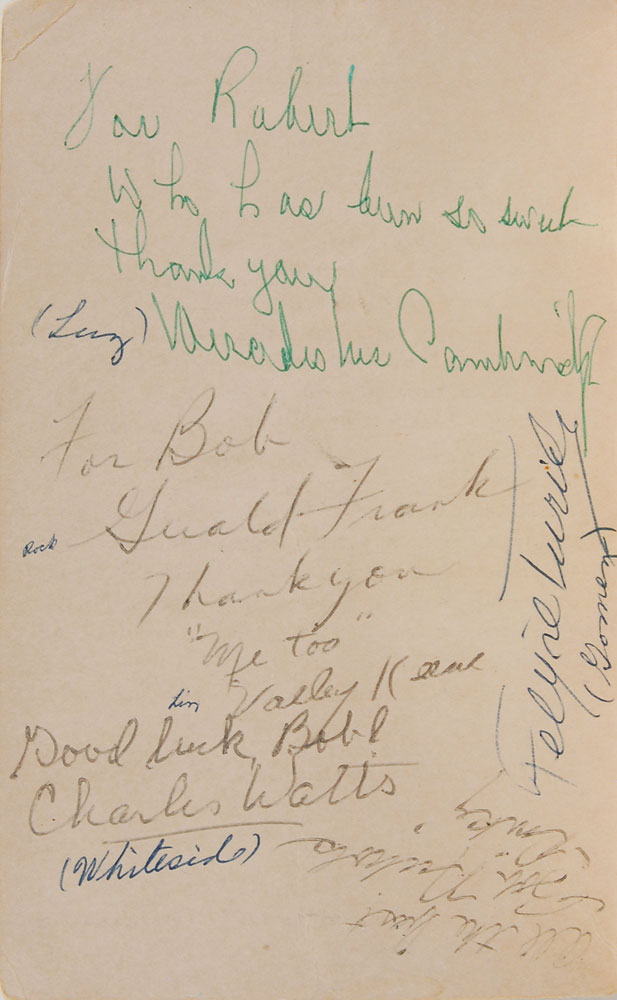 For Robert
Who has been so sweet
Thank you,
(Luz) Mercedes McCambridge
For Bob
Rock Gerald Frank
Thank you
"Me too"
Lin Valley Keene
Good luck, Bob!
Charles Watts
(Whiteside)
Felipe Turich
(Gomez)
All the best
Bob Nichols
"Pinky"